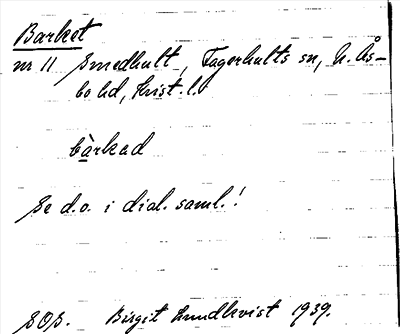 Barket
nr 11 Smedhult, Fagerhults sn, N. Ås-
bo hd, Krist. l.
bàrkad
Se d.o. i dial. saml.!
SOS. Birgit Lundkvist 1939.